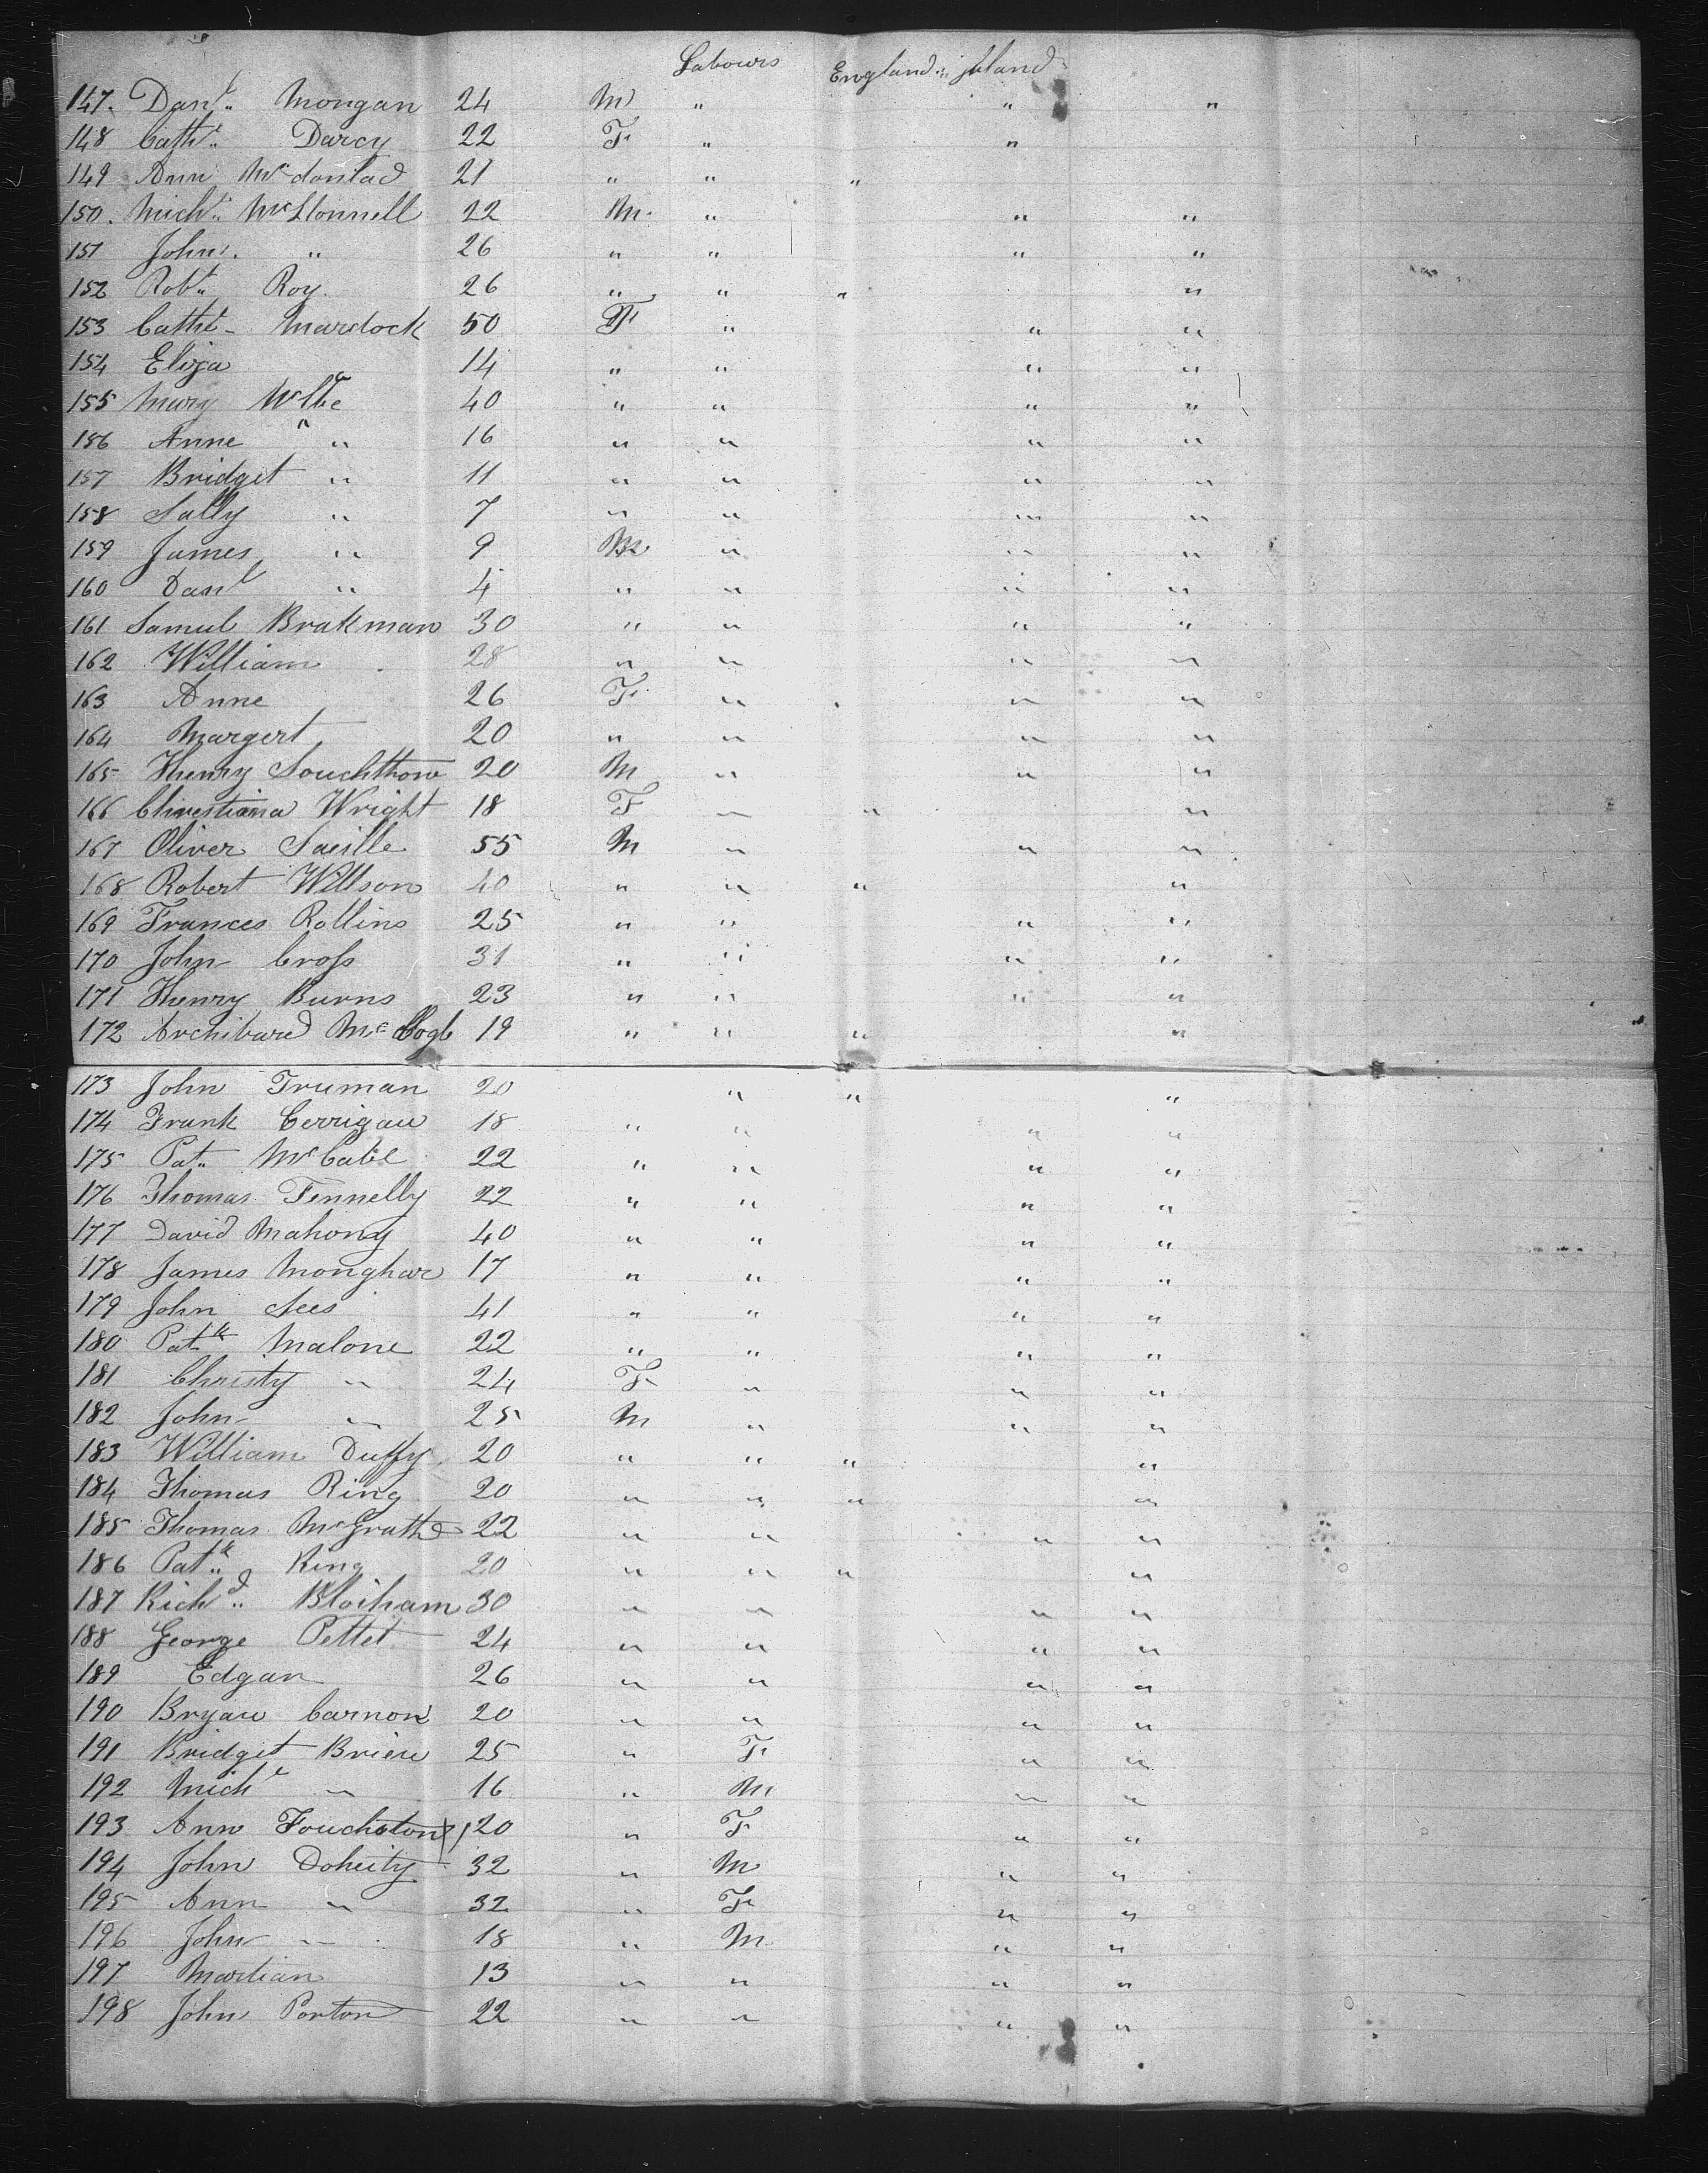 Labours England Ireland
147. Danl. Mongan 24 M " " "
148 Cathe. Darcy 22 F " "
149 Ann 21 " " "
150. Michl. McDonnell 22 M. " " "
151 John. " 26 " " " "
152 Robt. Roy. 26 " " " "
153 Cathe Mardock 50 F " " "
154 Eliza 14 " " " "
155 Mary 40 " " " "
156 Anne " 16 " " " "
157 Bridget " 11 " " " "
158 Sally " 7 " " " "
159 James " 9 M " " "
160 Danl " 4 " " " "
161 Samul Brakman 30 " " " "
162 William 28 " " " "
163 Anne 26 F. " " "
164 Margert 20 " " " "
165 Henry 20 M " " "
166 Christiana Wright 18 F " " "
167 Oliver 55 M " " "
168 Robert Willson 40 " " " "
169 Frances Rollins 25 " " " "
170 John Cross 31 " " " "
171 Henry Burns 23 " " " "
172 Archibard 19 " " " "
173 John Truman 20 " " "
174 Frank Cerrigan 18 " " " "
175 Pat. McCabe 22 " " " "
176 Thomas Fennelly 22 " " " "
177 David Mahony 40 " " " "
178 James Monghan 17 " " " "
179 John 41 " " " "
180 Patk Malone 22 " " " "
181 Christy " 24 F " " "
182 John " 25 M " " "
183 William Duffy 20 " " " "
184 Thomas Ring 20 " " " "
185 Thomas McGrath 22 " " " "
186 Patk. King 20 " " " "
187 Richd. 30 " " " "
188 George Pettet 24 " " " "
189 Edgan 26 " " " "
190 Bryan Carnon 20 " " " "
191 Bridget Brien 25 " F " "
192 Michl " 16 " M " "
193 Ann 20 " F " "
194 John Doheity 32 " M " "
195 Ann " 32 " F " "
196 John " 18 " M " "
197 Martian 13 " " " "
198 John Porton 22 " " " "